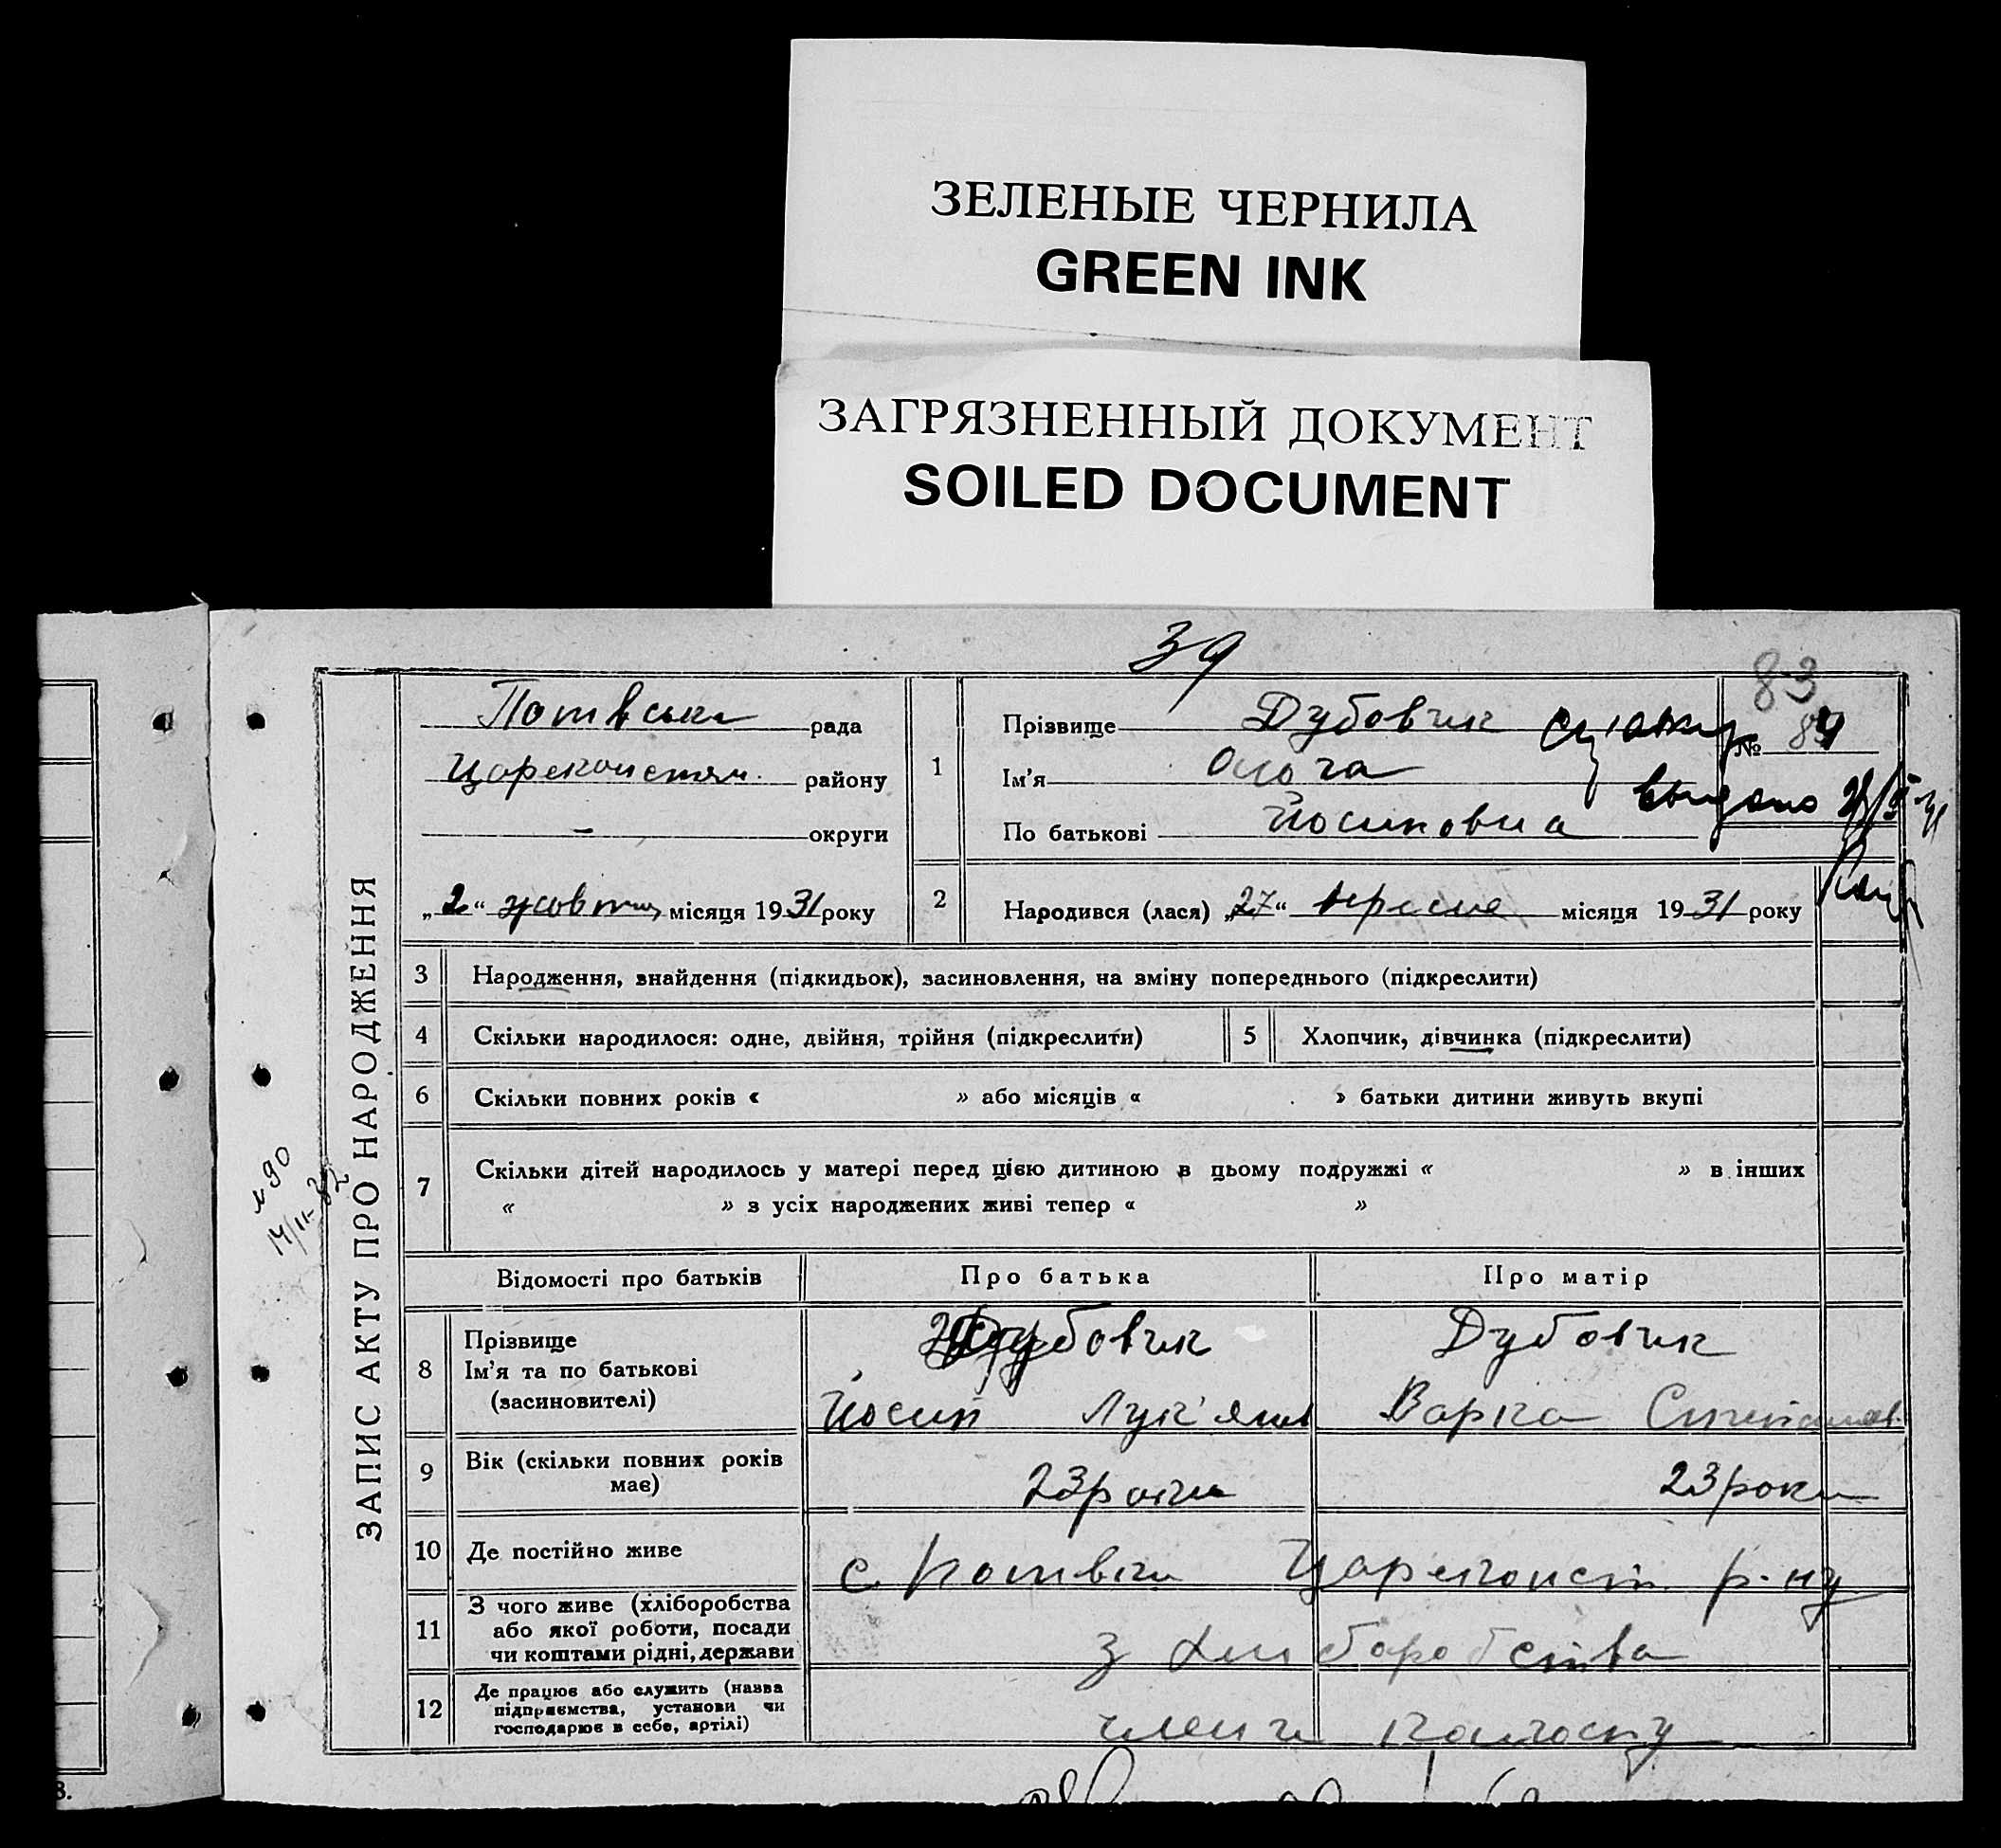 ЗЕЛЕНЫЕ ЧЕРНИЛА
GREEN INK
ЗАГРЯЗНЕННЫЙ ДОКУМЕНТ
SOILED DOCUMENT
39
83
ЗАПИС АКТУ ПРО НАРОДЖЕННЯ
рада
району
округи
„2“ жовтня місяця 1931 року
1
Прізвище Дубовик
Ім'я Ольга
По батькові Йосиповна
№ 84
2
Народився (лася) „27“ вересня місяця 1931 року
3 Народження, знайдення (підкидьок), засиновлення, на зміну попереднього (підкреслити)
4 Скільки народилося: одне, двійня, трійня (підкреслити)
5 Хлопчик, дівчинка (підкреслити)
6 Скільки повних років « » або місяців « » батьки дитини живуть вкупі
7 Скільки дітей народилось у матері перед цією дитиною в цьому подружжі « » в інших
« » з усіх народжених живі тепер « »
Відомості про батьків Про батька Про матір
8 Прізвище
Ім'я та по батькові
(засиновителі)
Дубовик
Йосип Лук'янов
Дубовик
Варка
9 Вік (скільки повних років
має)
23 роки
23 роки
10 Де постійно живе
с. р-ну
11 З чого живе (хліборобства
або якої роботи, посади
чи коштами рідні, держави
з хліборобства
12 Де працює або служить (назва
підприємства, установи чи
господарює в себе, артілі)
члени колгоспу
№ 90